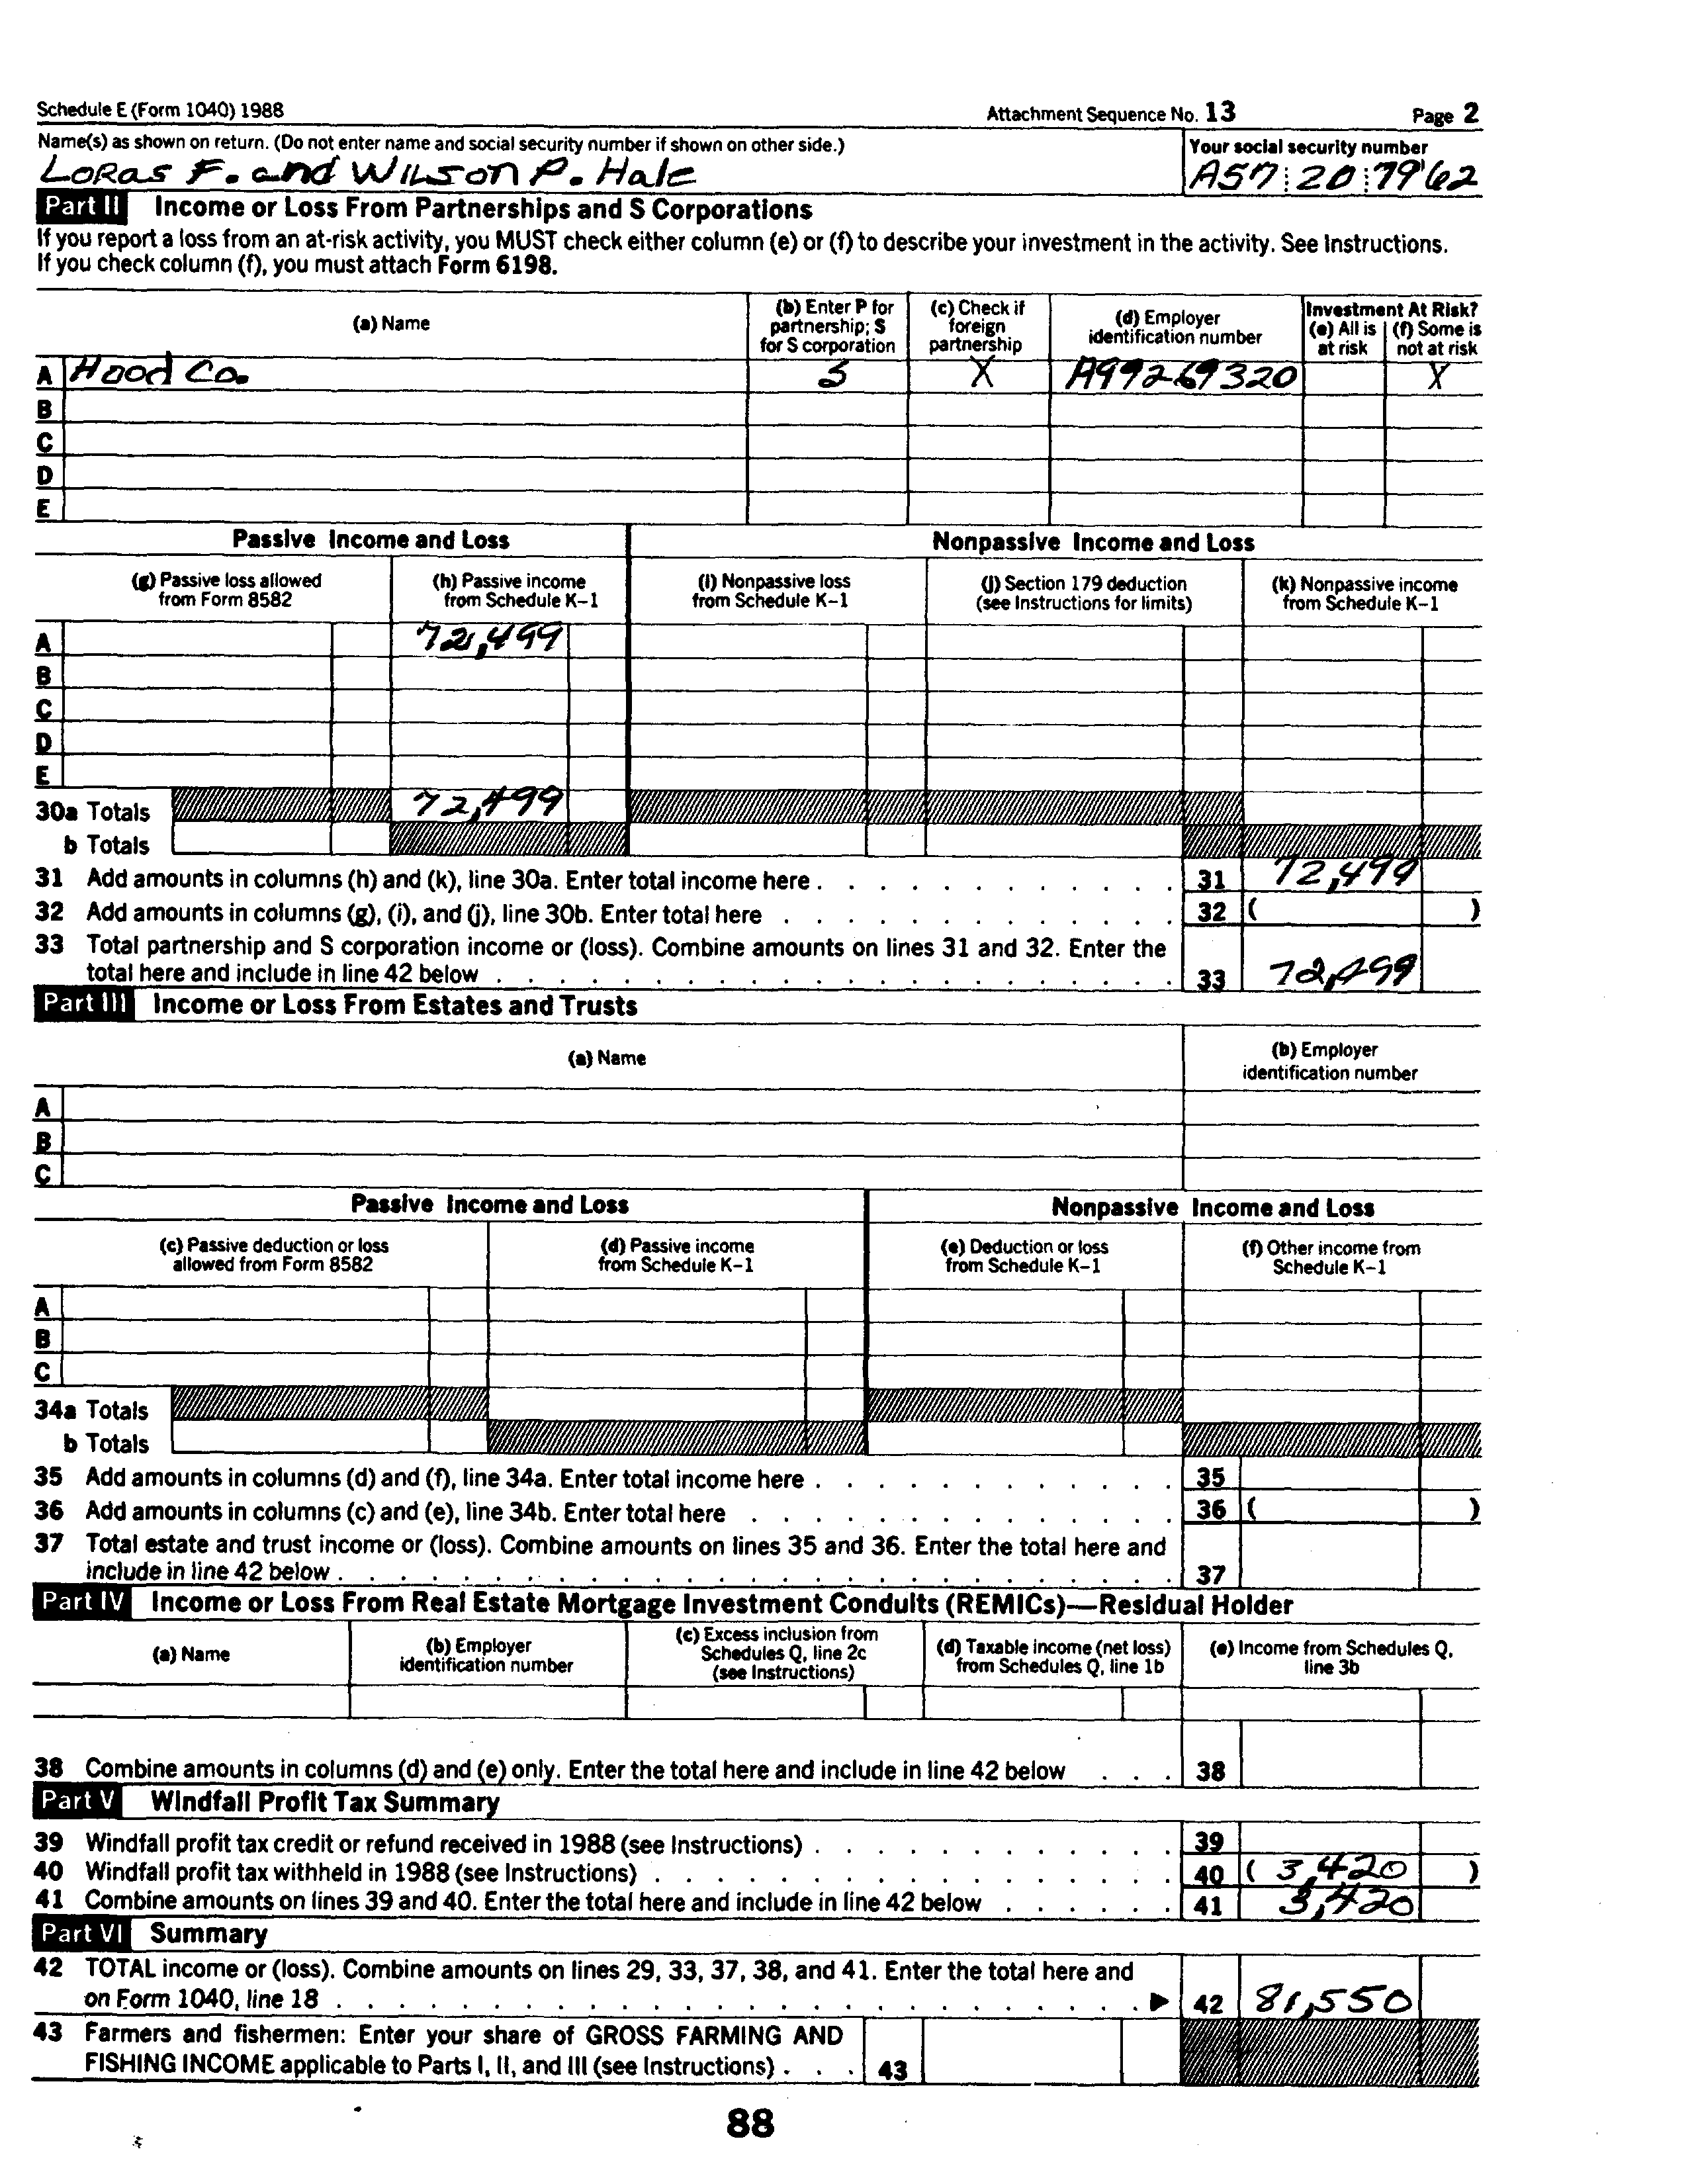 Schedule E (Form 1040) 1988 Attachment Sequence No. 13 Page 2
Name(s) as shown on return. (Do not enter name and social security number if shown on other side.) Your social security number
LORAS F. and WILSON P. Hale A57 20 7962
Part II Income or Loss From Partnerships and S Corporations
If you report a loss from an at-risk activity, you MUST check either column (e) or (f) to describe your investment in the activity. See Instructions.
If you check column (f), you must attach Form 6198.
(a) Name (b) Enter P for partnership; S for S corporation (c) Check if foreign partnership (d) Employer identification number Investment At Risk? (e) All is at risk (f) Some is not at risk
A Hood Co. S X A99269320 X
B
C
D
E
Passive Income and Loss Nonpassive Income and Loss
(g) Passive loss allowed from Form 8582 (h) Passive income from Schedule K–1 (i) Nonpassive loss from Schedule K–1 (j) Section 179 deduction (see Instructions for limits) (k) Nonpassive income from Schedule K–1
A 72,499
B
C
D
E
30a Totals 72,499
b Totals
31 Add amounts in columns (h) and (k), line 30a. Enter total income here . 31 72,499
32 Add amounts in columns (g), (i), and (j), line 30b. Enter total here 32 ( )
33 Total partnership and S corporation income or (loss). Combine amounts on lines 31 and 32. Enter the
total here and include in line 42 below 33 72,499
Part III Income or Loss From Estates and Trusts
(a) Name (b) Employer identification number
A
B
C
Passive Income and Loss Nonpassive Income and Loss
(c) Passive deduction or loss allowed from Form 8582 (d) Passive income from Schedule K–1 (e) Deduction or loss from Schedule K–1 (f) Other income from Schedule K–1
A
B
C
34a Totals
b Totals
35 Add amounts in columns (d) and (f), line 34a. Enter total income here . 35
36 Add amounts in columns (c) and (e), line 34b. Enter total here 36 ( )
37 Total estate and trust income or (loss). Combine amounts on lines 35 and 36. Enter the total here and
include in line 42 below . 37
Part IV Income or Loss From Real Estate Mortgage Investment Conduits (REMICs)—Residual Holder
(a) Name (b) Employer identification number (c) Excess inclusion from Schedules Q, line 2c (see Instructions) (d) Taxable income (net loss) from Schedules Q, line 1b (e) Income from Schedules Q, line 3b
38 Combine amounts in columns (d) and (e) only. Enter the total here and include in line 42 below 38
Part V Windfall Profit Tax Summary
39 Windfall profit tax credit or refund received in 1988 (see Instructions) . 39
40 Windfall profit tax withheld in 1988 (see Instructions) . 40 ( 3,420 )
41 Combine amounts on lines 39 and 40. Enter the total here and include in line 42 below 41 3,420
Part VI Summary
42 TOTAL income or (loss). Combine amounts on lines 29, 33, 37, 38, and 41. Enter the total here and
on Form 1040, line 18 ▶ 42 81,550
43 Farmers and fishermen: Enter your share of GROSS FARMING AND
FISHING INCOME applicable to Parts I, II, and III (see Instructions) . 43
88